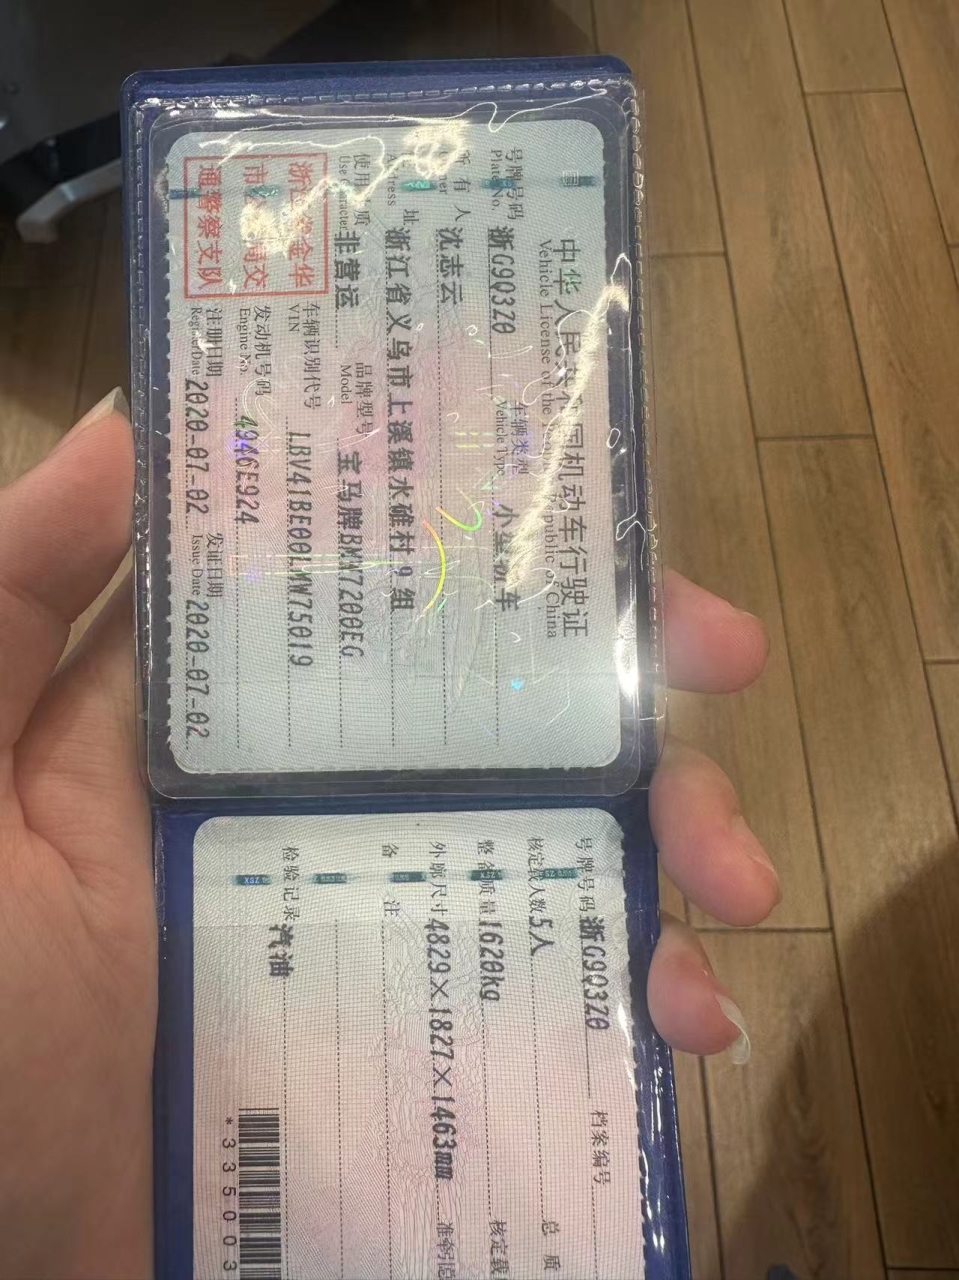 中华人民共和国机动车行驶证
Vehicle License of the People's Republic of China
号牌号码 浙G9Q3Z0 车辆类型 小型轿车
Plate No. Vehicle Type
所有人 沈志云
住址 浙江省义乌市上溪镇水碓村9组
使用性质 非营运 品牌型号 宝马牌BMW7200EG
Use Character Model
浙江省金华
市公安局交
通警察支队
车辆识别代号 LBV41BE00LMW75019
VIN
发动机号码 4946E924
Engine No.
注册日期 2020-07-02 发证日期 2020-07-02
Register Date Issue Date
号牌号码 浙G9Q3Z0 档案编号
核定载人数 5人 总质
整备质量 1620kg 核定载
外廓尺寸 4829×1827×1463mm 准牵引总
备注
检验记录 汽油
*335003